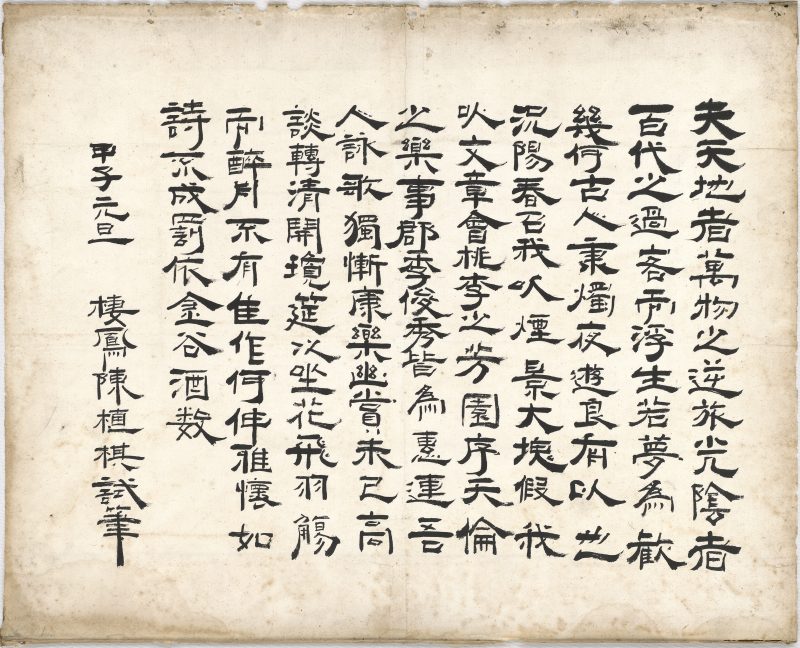 夫天地者萬物之逆旅光陰者
百代之過客而浮生若夢為歡
幾何古人秉燭夜遊良有以也
況陽春召我以煙景大塊假我
以文章會桃李之芳園序天倫
之樂事郡季俊秀皆為惠連吾
人詠歌獨慚康樂幽賞未已高
談轉清開瓊筵以坐花飛羽觴
而醉月不有佳作何伸雅懷如
詩不成罰依金谷酒数
甲子元旦 棲鳳陳植棋試筆